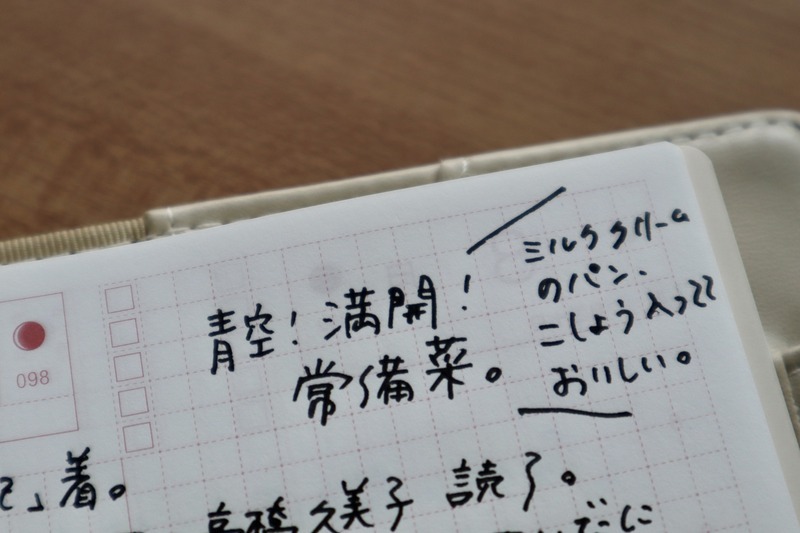 青空！満開！
常備菜。
ミルククリーム
のパン、
こしょう入ってて
おいしい。
098
」着。
高橋久美子 読了。
だに